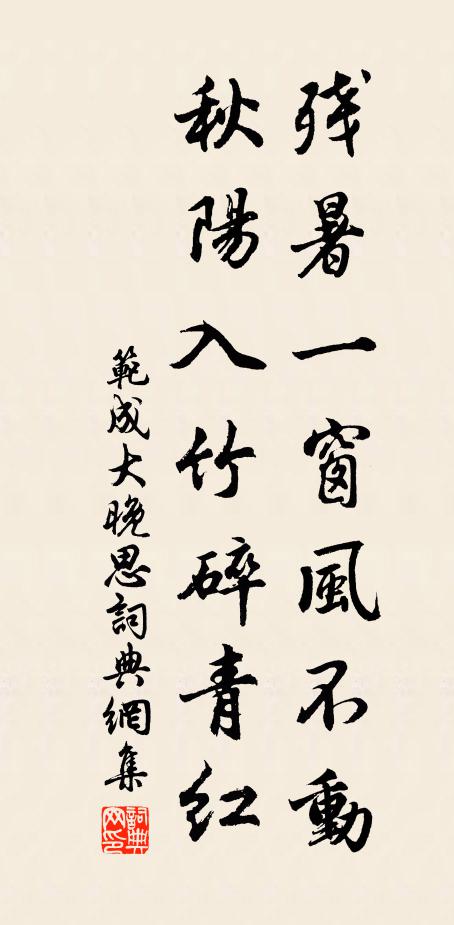 残暑一窗風不動
秋陽入竹碎青紅
範成大晚思詞典網集
詞典网印